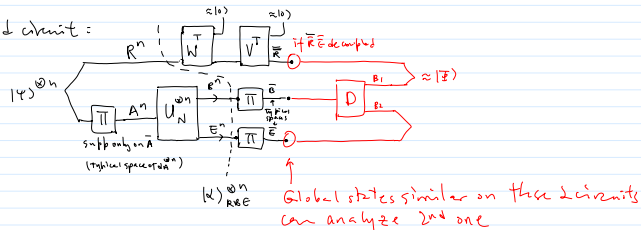 d circuit =
≈|0⟩ ≈|0⟩
R^n W^T V^T R̄ if R̄Ē decoupled
|ψ⟩^{⊗n} B^n Π B̄ D B_1 ≈|Φ⟩
Π A^n U_N^{⊗n} typical spaces B_2
supp only on Ā E^n Π Ē
(typical space of α_A^{⊗n})
|α⟩^{⊗n}_{RBE}
Global states similar on these 2 circuits
can analyze 2nd one